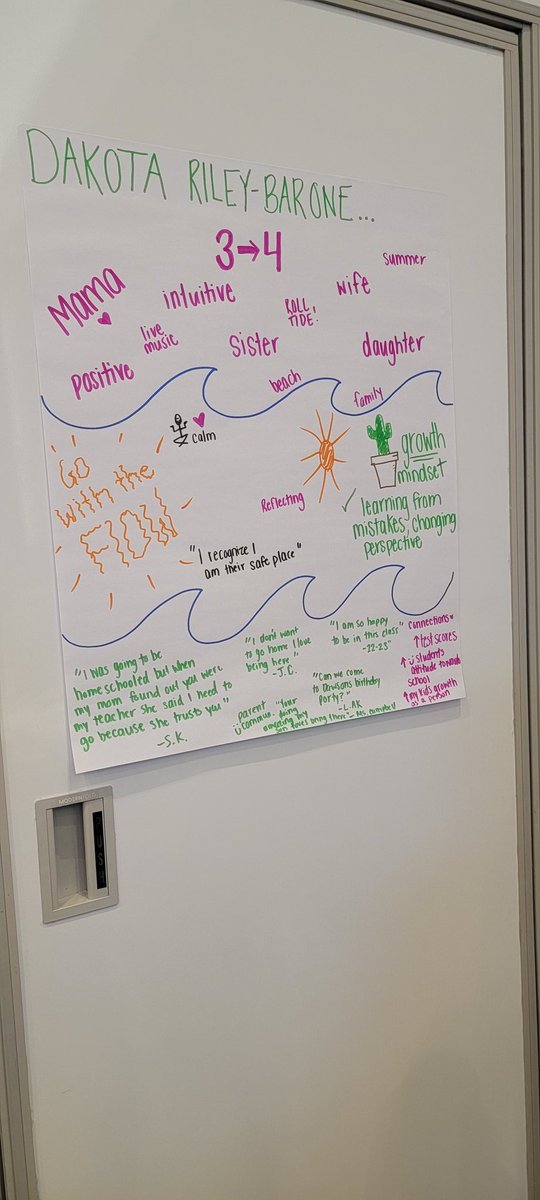 DAKOTA RILEY-BARONE...
3→4
summer
Mama
intuitive
wife
ROLL
TIDE!
live
music
sister
daughter
positive
beach
family
calm
GO
with the
FLOW
growth
mindset
Reflecting
✓ learning from
mistakes, changing
perspective
"I recognize I
am their safe place"
"I was going to be
homeschooled but when
my mom found out you were
my teacher she said I need to
go because she trusts you"
-S.K.
"I don't want
to go home I love
being here"
-J.C.
"I am so happy
to be in this class"
-22-23"
"Can we come
to Dawsons birthday
Party?"
-L.AK
parent
commun. "Your
doing
amazing my
son loves being there"- Ms. Campbell
connections
↑test scores
↑ students
attitude towards
school
↑my kids growth
as a person
MODERNFOLD